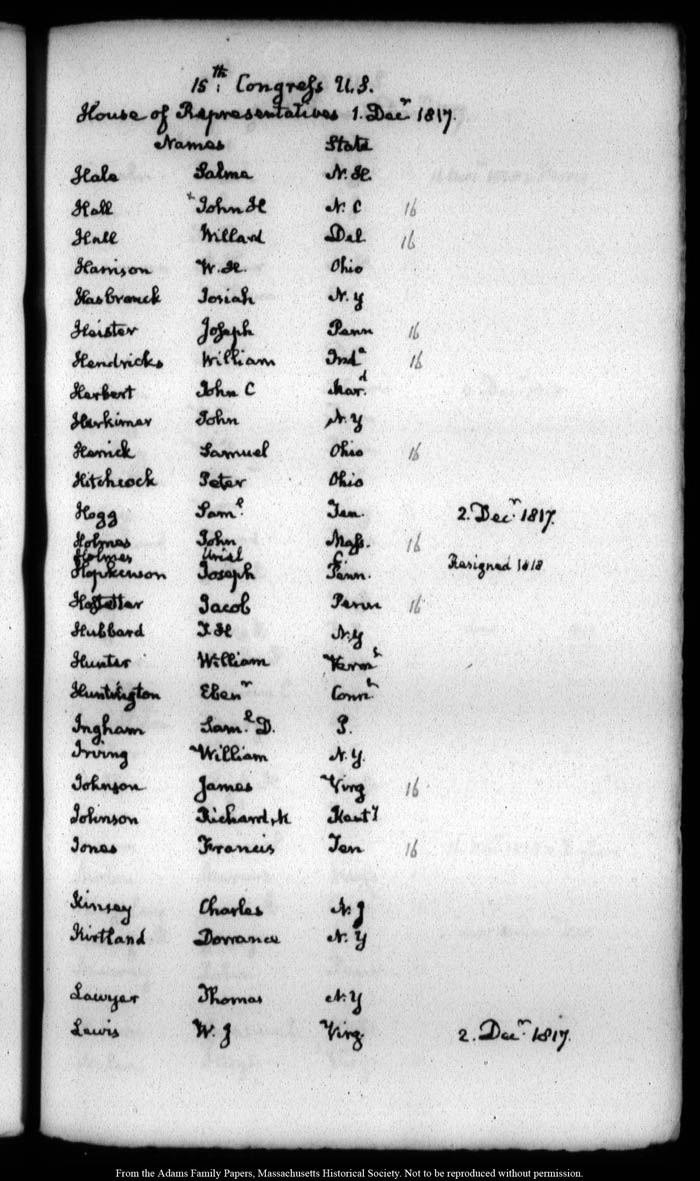 15th: Congress U.S.
House of Representatives 1. Decr 1817.
Names State
Hale Salma N. H.
Hall x John H N. C 16
Hall Willard Del 16
Harrison W. H. Ohio
Hasbrouck Josiah N. Y
Heister Joseph Penn 16
Hendricks William Inda 16
Herbert John C Mard.
Herkimer John N. Y
Herrick Samuel Ohio 16
Hitchcock Peter Ohio
Hogg Saml. Ten. 2. Decr. 1817.
Holmes John Mass. 16
Holmes Uriel C.
Hopkinson Joseph Penn. Resigned 1818
Hostetter Jacob Penn 16
Hubbard T. H N.Y
Hunter William Vermt
Huntington Ebenr Connt
Ingham Saml. D. P.
Irving William N. Y.
Johnson James Virg 16
Johnson Richard, M Kenty
Jones Francis Ten 16
Kinsey Charles N. J
Kirtland Dorrance N. Y
Lawyer Thomas N. Y
Lewis W. J Virg. 2. Decr. 1817.
From the Adams Family Papers, Massachusetts Historical Society. Not to be reproduced without permission.